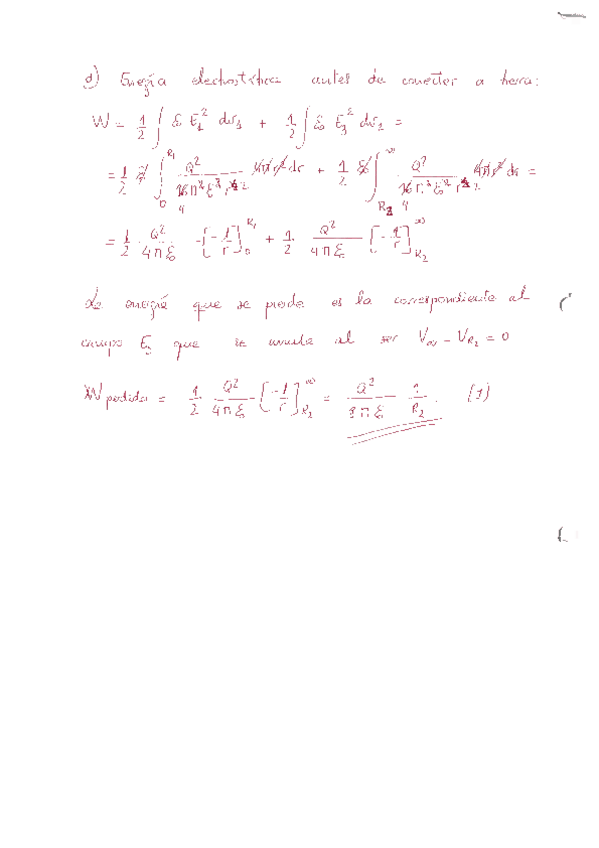 d) Energía electrostática antes de conectar a tierra:
W = 1/2 ∫ ε₀ E₁² dv₁ + 1/2 ∫ ε₀ E₃² dv₂ =
= 1/2 ε₀ ∫₀^R₁ Q²/(16π²ε₀²r⁴) 4πr² dr + 1/2 ε₀ ∫_R₂^∞ Q²/(16π²ε₀²r⁴) 4πr² dr =
= 1/2 Q²/(4πε₀) [-1/r]₀^R₁ + 1/2 Q²/(4πε₀) [-1/r]_R₂^∞
La energía que se pierde es la correspondiente al
campo E₃ que se anula al ser V∞ - V_R₂ = 0
W perdida = 1/2 Q²/(4πε₀) [-1/r]_R₂^∞ = Q²/(8πε₀) 1/R₂. (J)